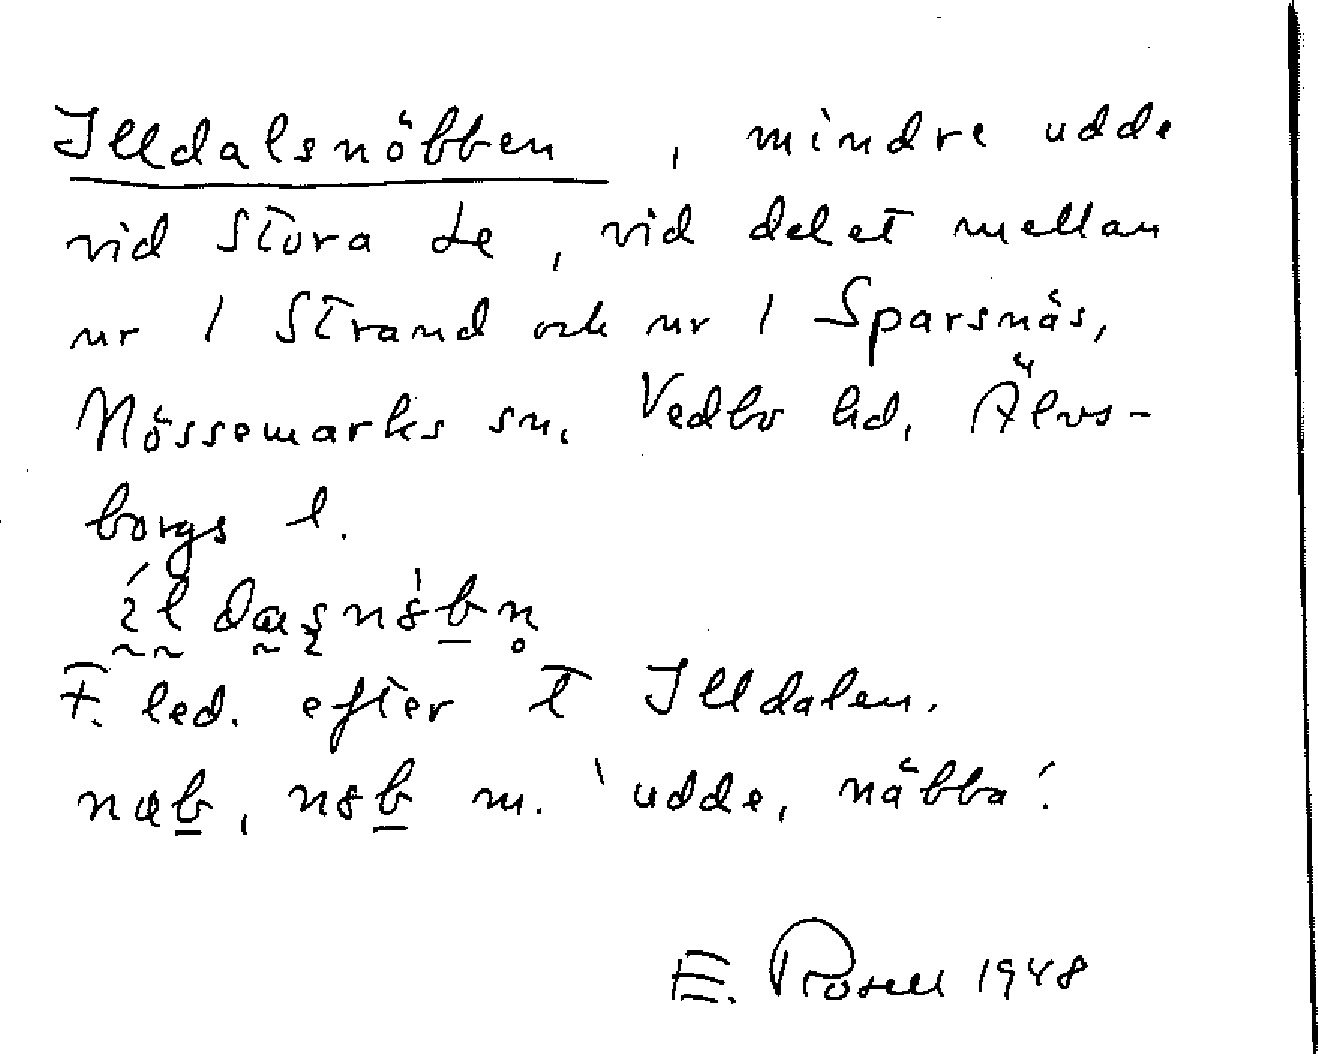 Illdalsnöbben, mindre udde
vid Stora Le, vid delet mellan
nr 1 Strand och nr 1 Sparsnäs,
Nössemarks sn. Vedbo hd, Älvs-
borgs l.
F. led. efter t Illdalen.
næb, n8b m. 'udde, näbba'.
E. Rosell 1948